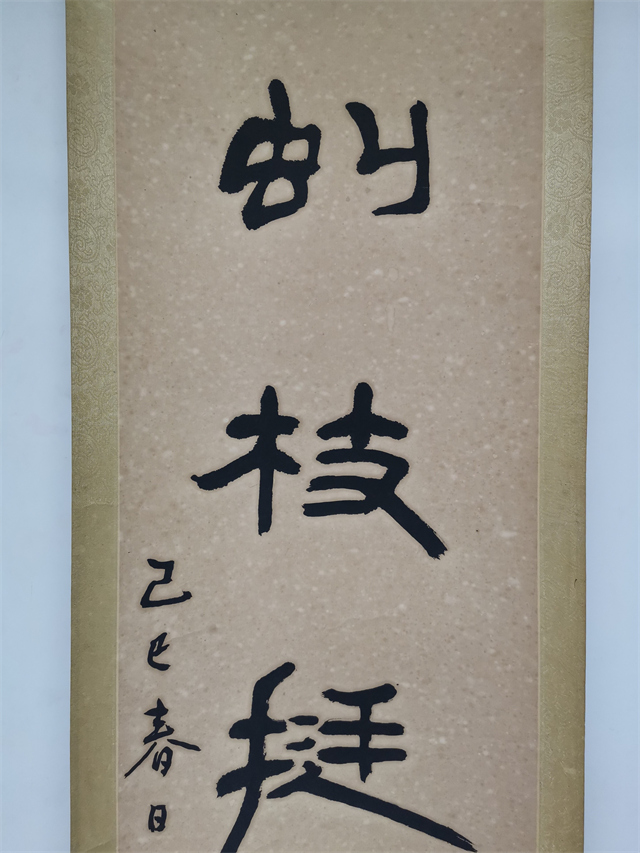 虯枝挺
己巳春日